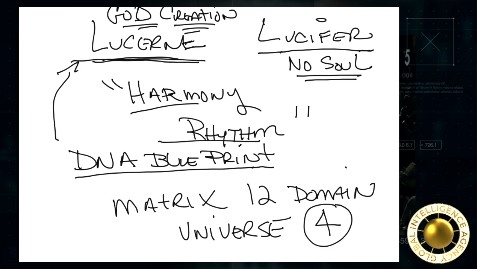 GOD CREATION
LUCERNE
LUCIFER
NO SOUL
"HARMONY
RHYTHM"
DNA BLUEPRINT
MATRIX 12 DOMAIN
UNIVERSE 4
GLOBAL INTELLIGENCE AGENCY